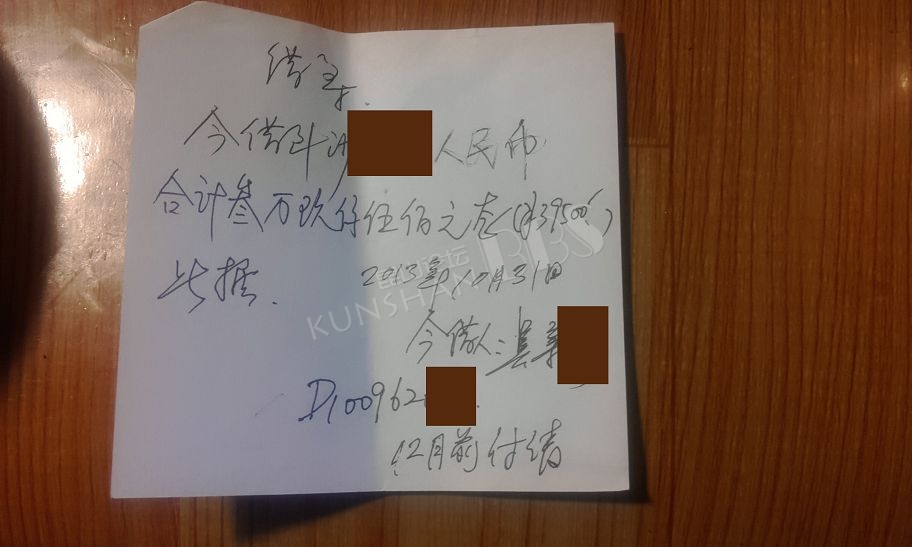 借条.
今借到 人民币
合计叁万玖仟伍佰元整(¥39500)
此据. 2013年10月31日
KUNSHAN BBS
今借人:
D100962
12月前付清